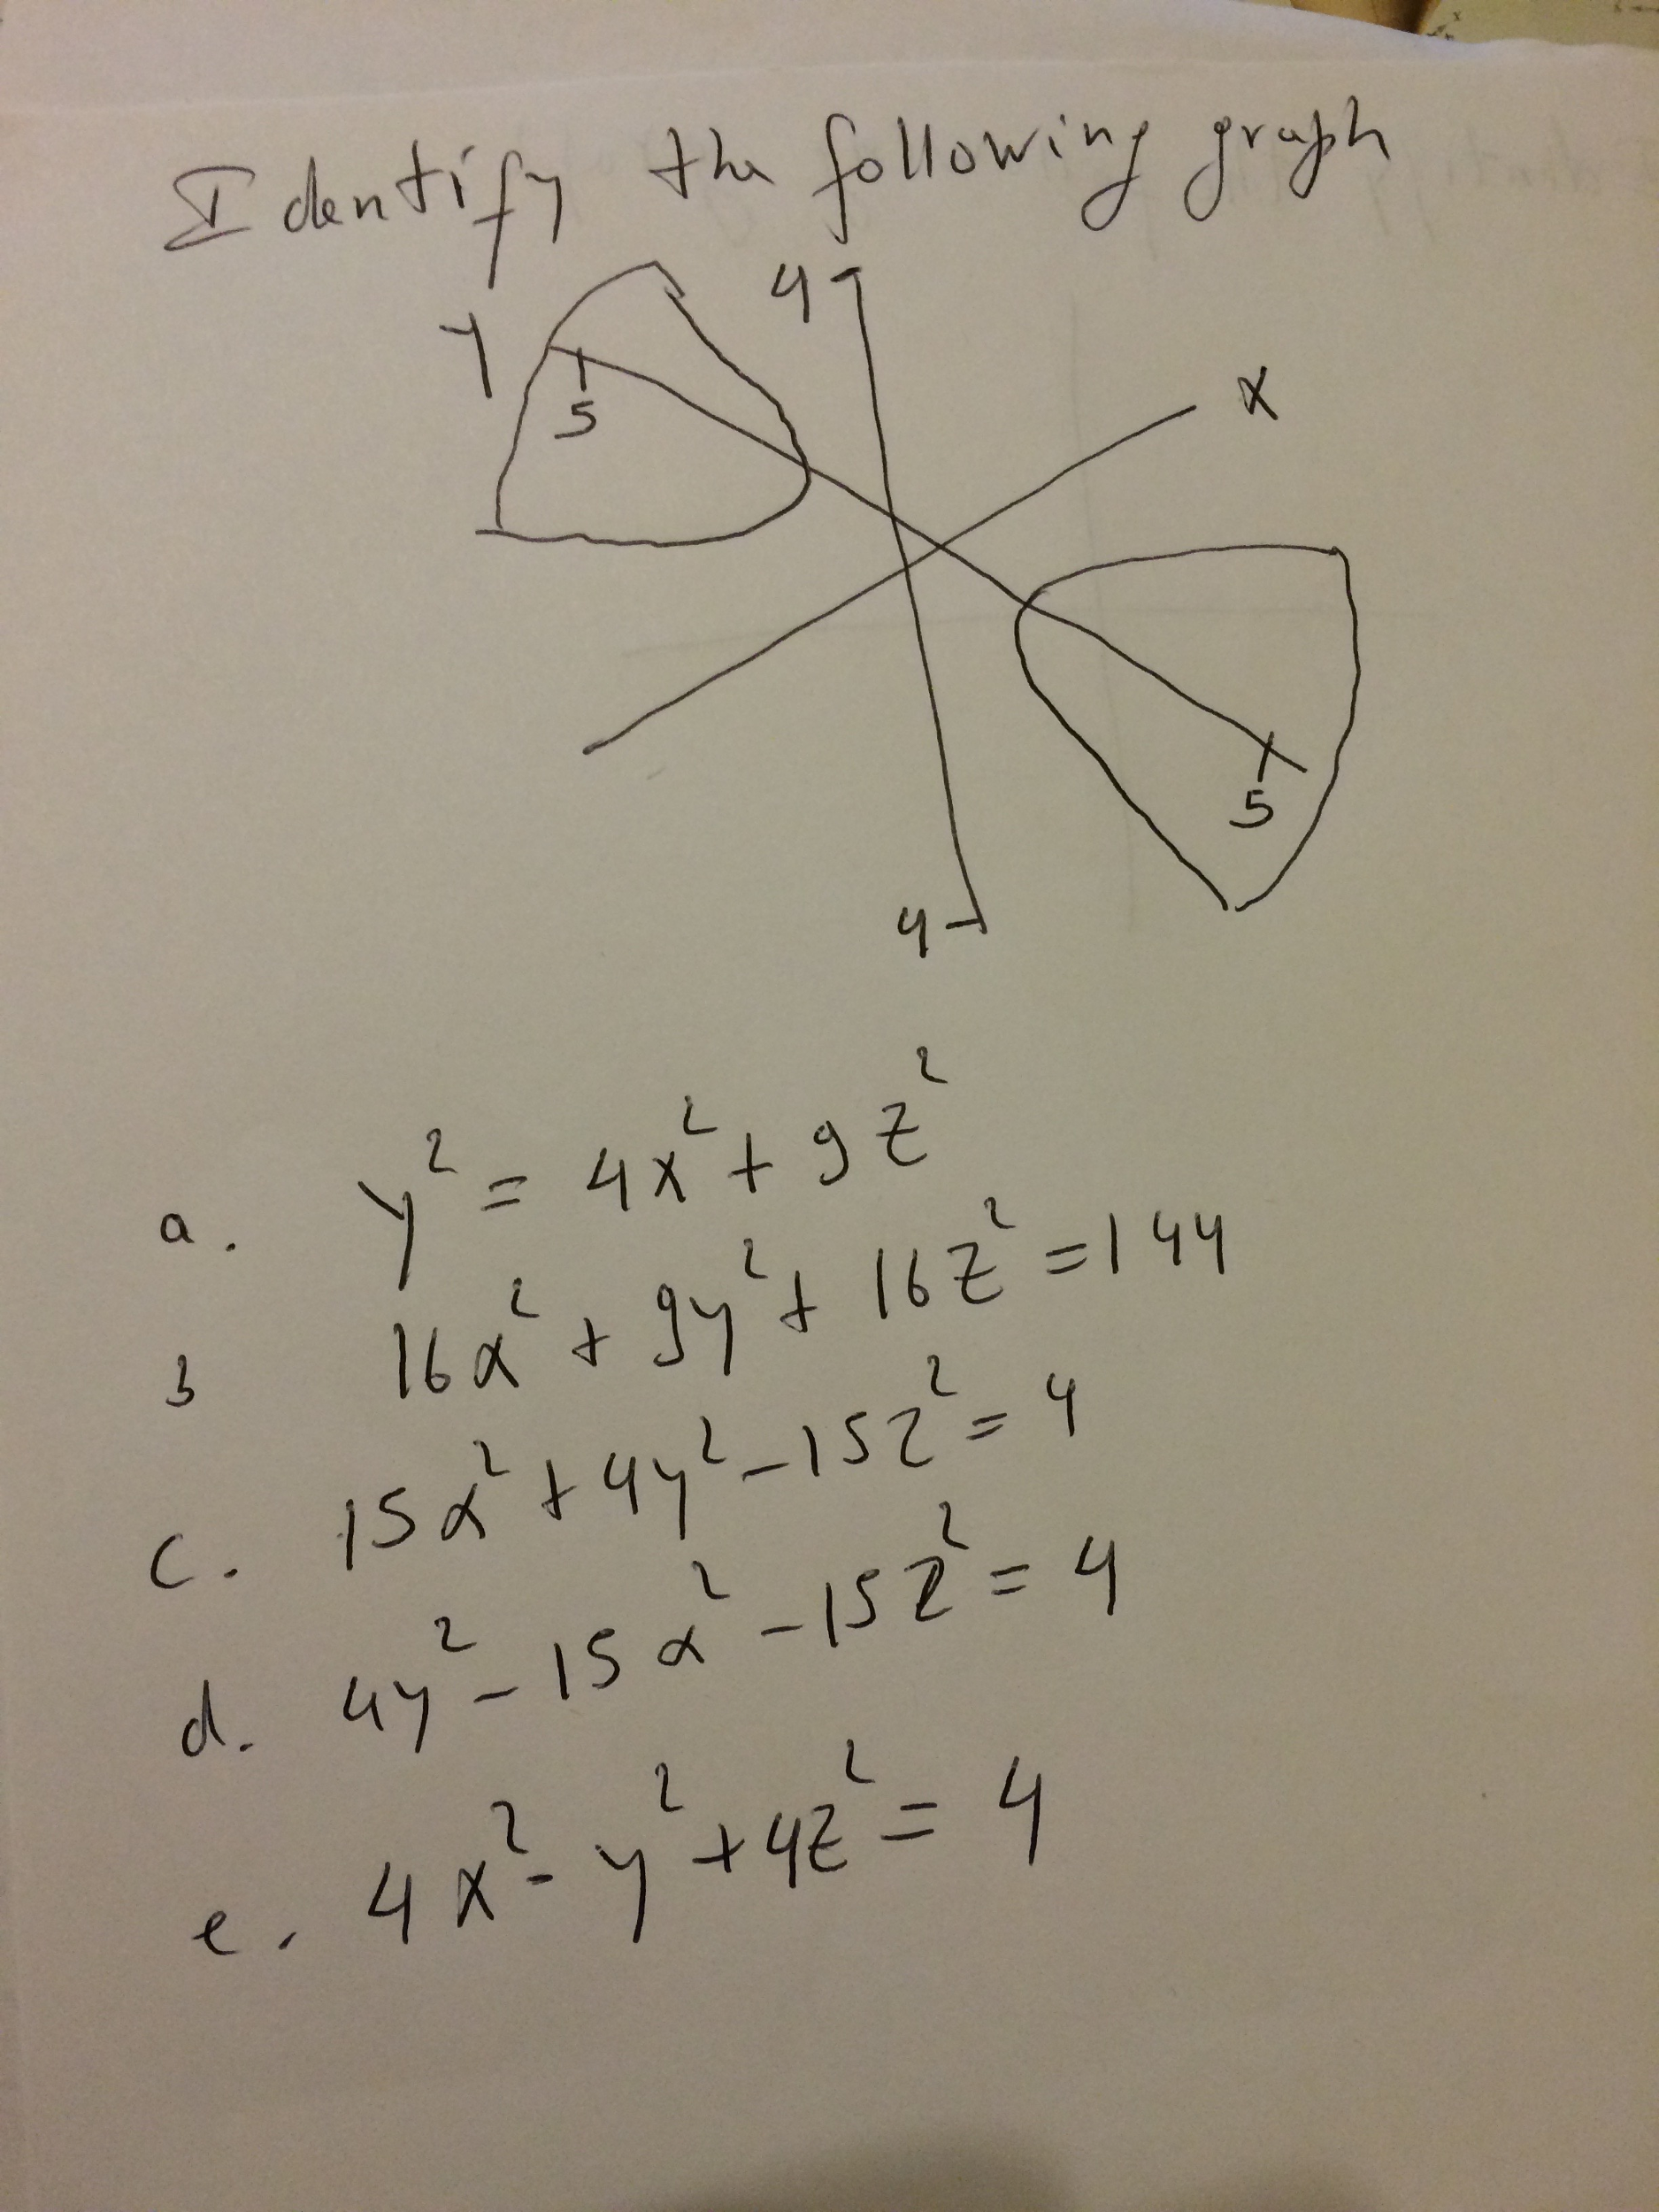 Identify the following graph
4
Y
X
5
5
4
a. y² = 4x² + 9z²
b 16x² + 9y² + 16z² = 144
c. 15x² + 4y² - 15z² = 4
d. 4y² - 15x² - 15z² = 4
e. 4x² - y² + 4z² = 4